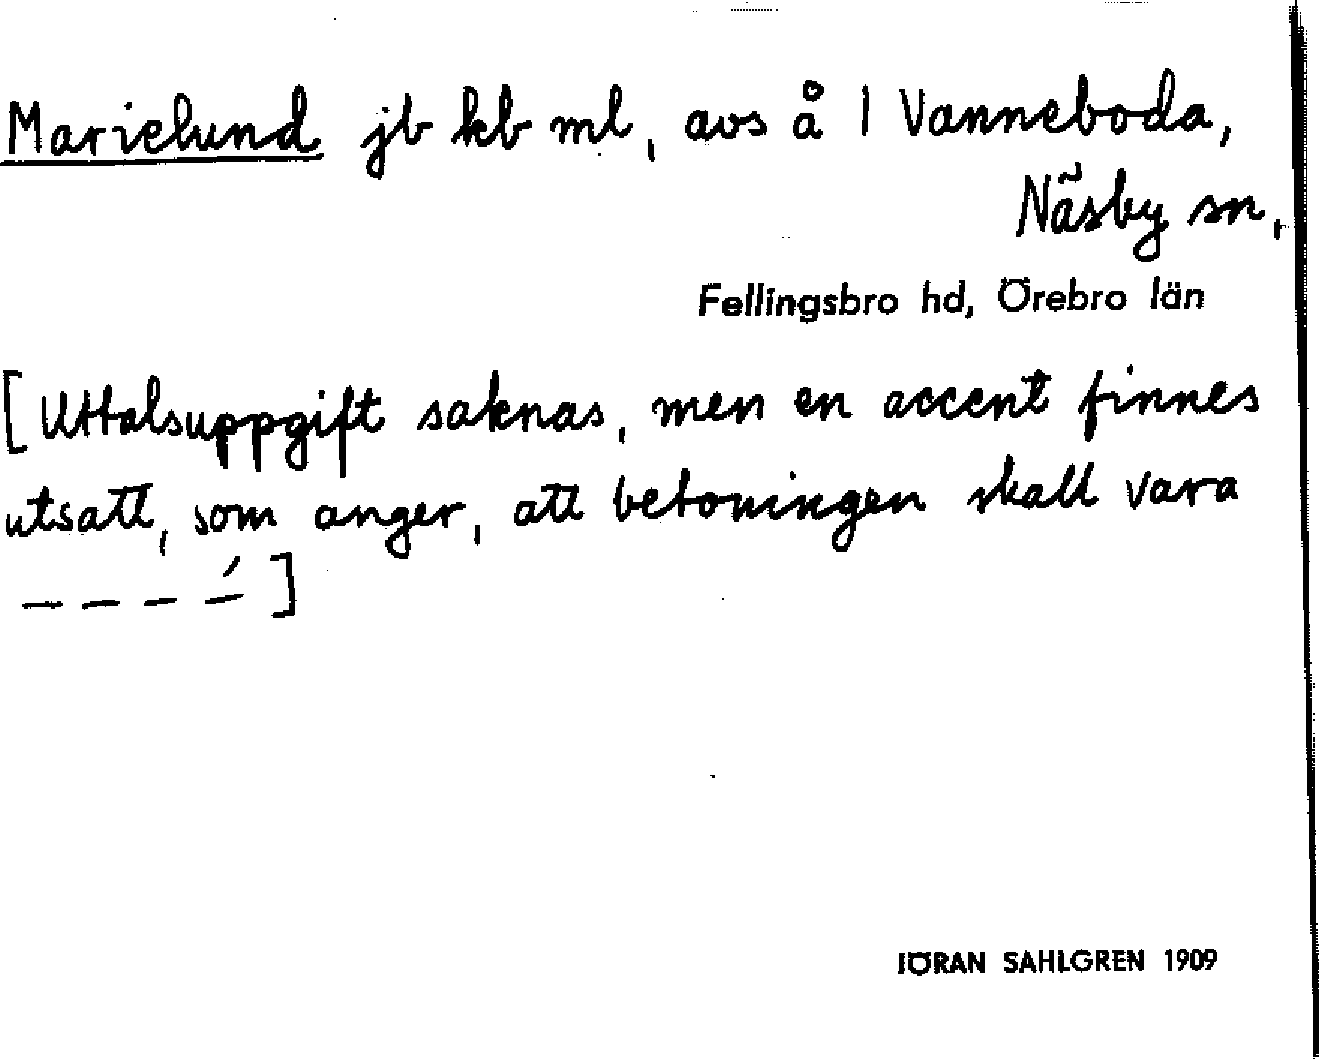 Marielund jb kb ml, avs å 1 Vanneboda,
Näsby sn,
Fellingsbro hd, Örebro län
[Uttalsuppgift saknas, men en accent finnes
utsatt, som anger, att betoningen skall vara
_ _ _ _́ ]
JÖRAN SAHLGREN 1909